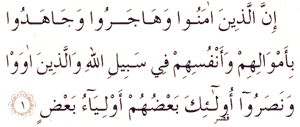 إِنَّ الَّذِينَ اٰمَنُوا وَهَاجَرُوا وَجَاهَدُوا
بِأَمْوَالِهِمْ وَأَنْفُسِهِمْ فِي سَبِيلِ اللهِ وَالَّذِينَ اٰوَوْا
وَنَصَرُوا أُولٰٓئِكَ بَعْضُهُمْ أَوْلِيَآءُ بَعْضٍ ١